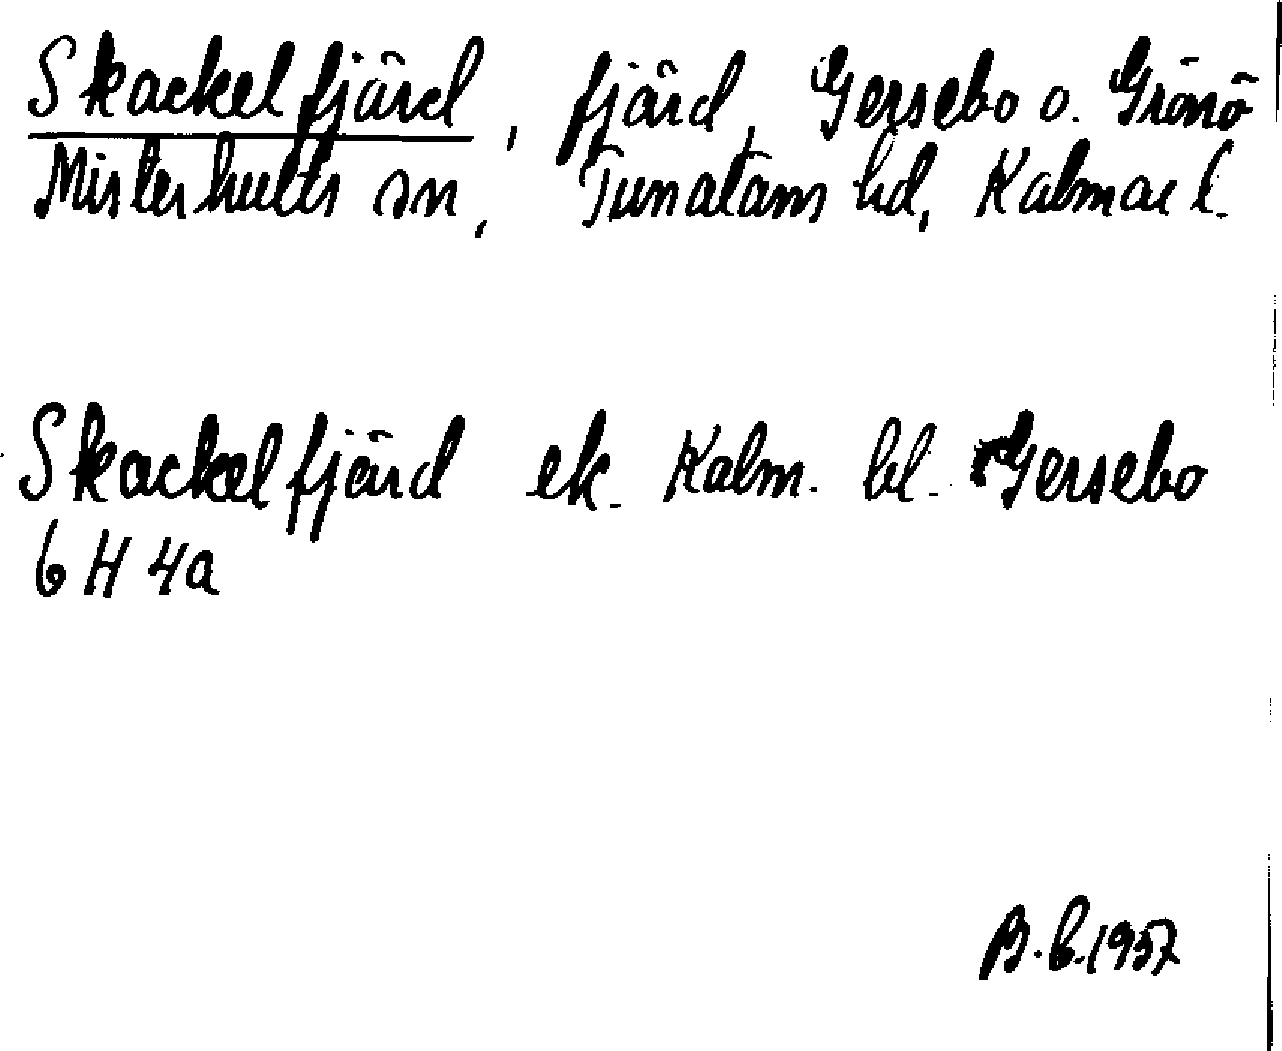 Skackelfjärd, fjärd, Gersebo o. Grönö
Misterhults sn, Tunaläns hd, Kalmar l.
Skackelfjärd ek. Kalm. bl. Gersebo
6 H 4a
B. L. 1957